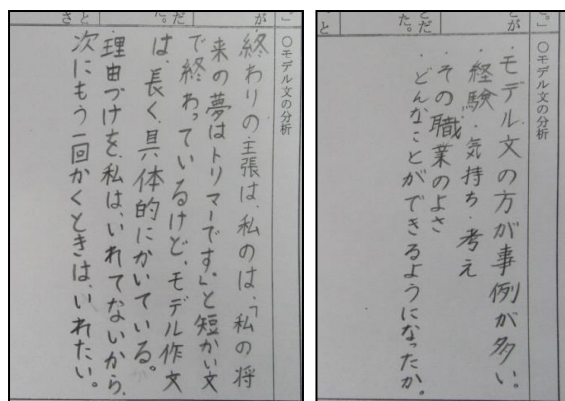 ○モデル文の分析
終わりの主張は、私のは、「私の将
来の夢はトリマーです。」と短かい文
で終わっているけど、モデル作文
は、長く、具体的にかいている。
理由づけを、私は、いれてないから、
次にもう一回かくときは、いれたい。
○モデル文の分析
・モデル文の方が事例が多い。
・経験・気持ち・考え
・その職業のよさ
・どんなことができるようになったか。